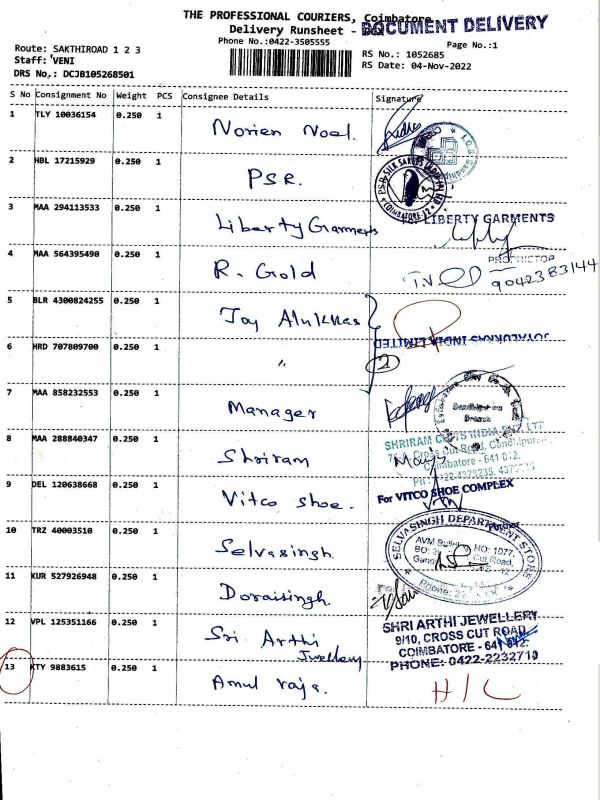 THE PROFESSIONAL COURIERS, Coimbatore
Delivery Runsheet -
DOCUMENT DELIVERY
Phone No.:0422-3505555
Page No.:1
Route: SAKTHIROAD 1 2 3
RS No.: 1052685
Staff: VENI
RS Date: 04-Nov-2022
DRS No,: DCJB105268501
S No Consignment No Weight PCS Consignee Details Signature
1 TLY 10036154 0.250 1 Norien Noel
2 HBL 17215929 0.250 1 PSR.
P.S.R. SILK SAREES
COIMBATORE-12
3 MAA 294113533 0.250 1 Liberty Garments
LIBERTY GARMENTS
4 MAA 564395490 0.250 1 R. Gold
PROPRIETOR
9042383144
5 BLR 4300824255 0.250 1 Joy Alukkas
JOYALUKKAS INDIA LIMITED
6 HRD 707809700 0.250 1 "
2
7 MAA 858232553 0.250 1 Manager
8 MAA 288840347 0.250 1 Shriram
SHRIRAM CHITS INDIA PVT LTD
Cross Cut Road, Gandhipuram
Coimbatore - 641 012.
9 DEL 120638668 0.250 1 Vitco shoe.
For VITCO SHOE COMPLEX
10 TRZ 40003510 0.250 1 Selvasingh
SELVASINGH DEPARTMENT STORE
11 KUR 527926948 0.250 1 Doraisingh
12 VPL 125351166 0.250 1 Sri Arthi
Jwellery
SHRI ARTHI JEWELLERY
9/10, CROSS CUT ROAD,
COIMBATORE - 641 012.
PHONE: 0422-2232710
13 KTY 9883615 0.250 1 Amul raja.
H/C